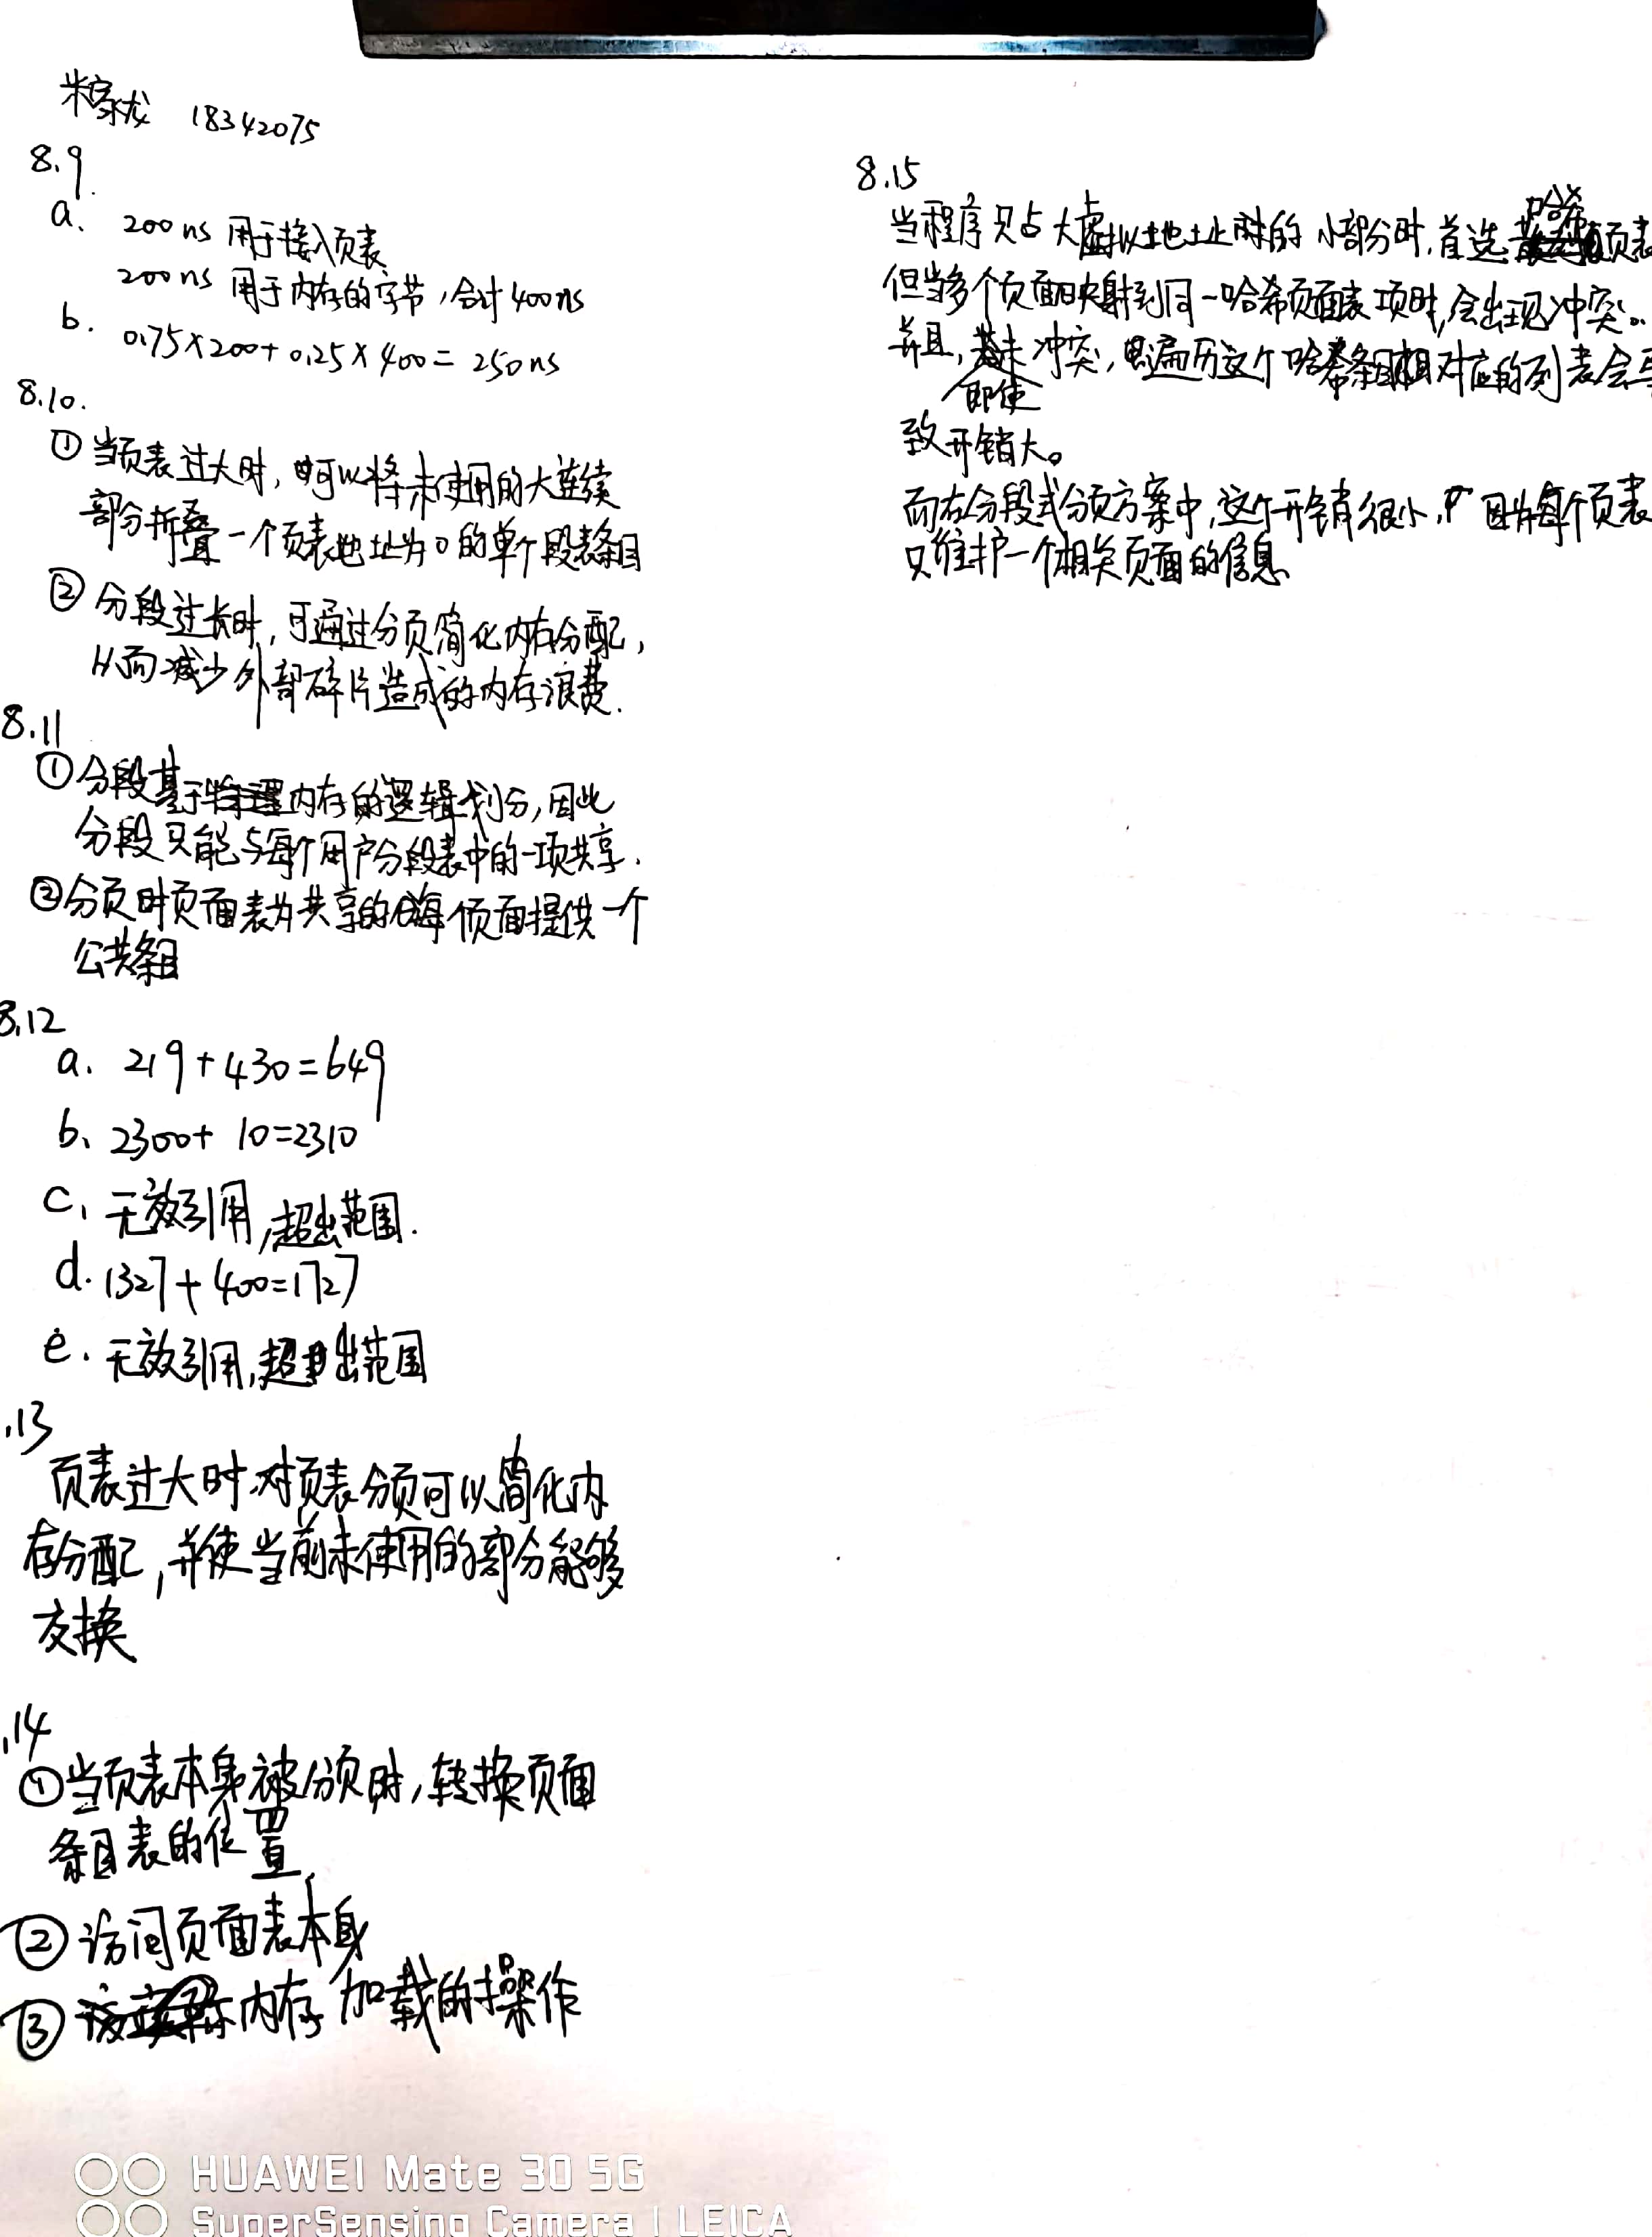 米家龙 18342075
8.9
a. 200ns 用于接入页表
200ns 用于内存的字节,合计400ns
b. 0.75×200+0.25×400=250ns
8.10.
① 当页表过大时,可以将未使用的大连续
部分折叠一个页表地址为0的单个段表条目
② 分段过长时,可通过分页简化内存分配,
从而减少外部碎片造成的内存浪费.
8.11
① 分段基于内存的逻辑划分,因此
分段只能与每个用户分段表中的一项共享.
② 分页时页面表为共享的每个页面提供一个
公共条目
8.12
a. 219+430=649
b. 2300+10=2310
c. 无效引用,超出范围.
d. 1327+400=1727
e. 无效引用,超出范围
.13
页表过大时,对页表分页可以简化内
存分配,并使当前未使用的部分能够
交换
.14
① 当页表本身被分页时,转换页面
条目表的位置
② 访问页面表本身
③ 内存加载的操作
8.15
当程序只占大虚拟地址时的小部分时,首选哈希页表
但当多个页面映射到同一哈希页面表项时,会出现冲突。
并且,即使冲突,遍历这个哈希条目相对应的列表会导
致开销大。
而在分段式分页方案中,这个开销很小,因为每个页表
只维护一个相关页面的信息
HUAWEI Mate 30 5G
SuperSensing Camera | LEICA